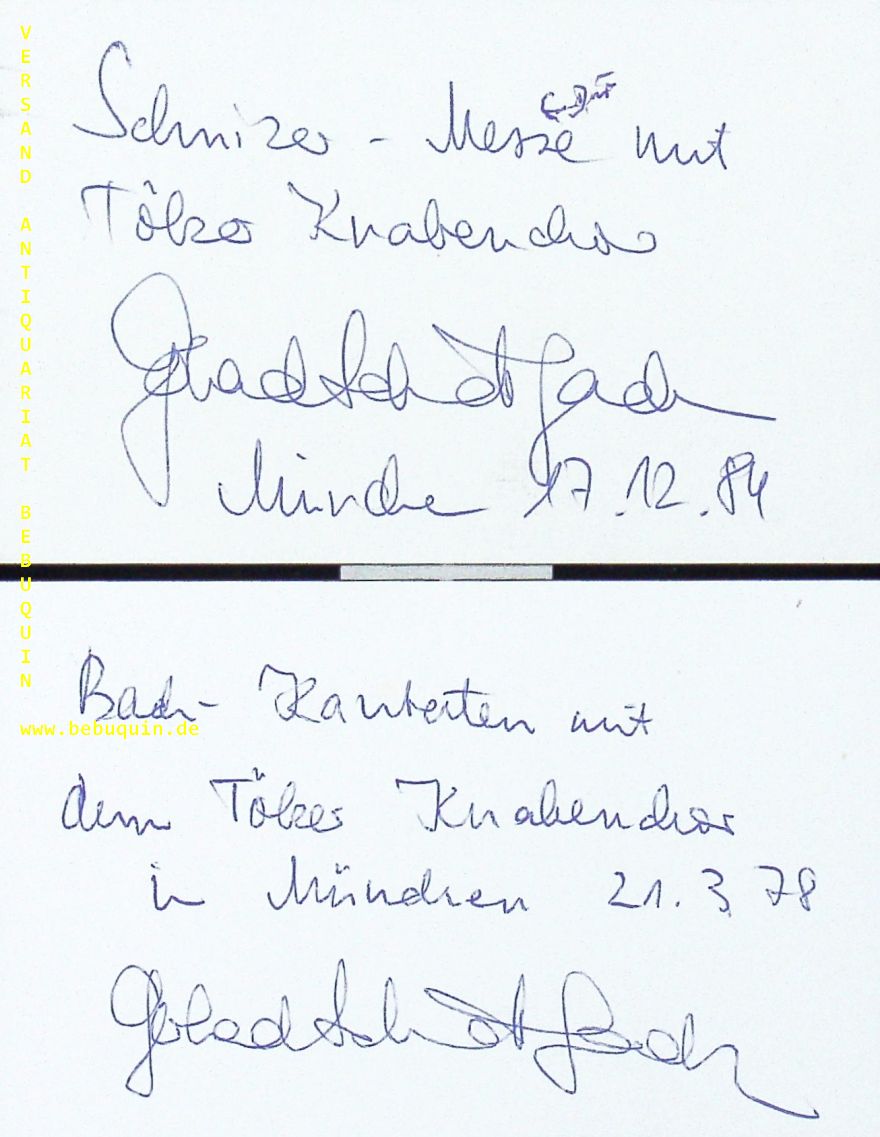 VERSAND ANTIQUARIAT BEBUQUIN
www.bebuquin.de
Messe mit
Tölzer Knabenchor
Gerhard Schmidt-Gaden
München 17.12.84
Bach-Kantaten mit
dem Tölzer Knabenchor
in München 21.3.78
Gerhard Schmidt-Gaden